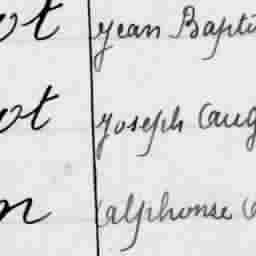 ot Jean Bapti
ot Joseph Aug
n Alphonse